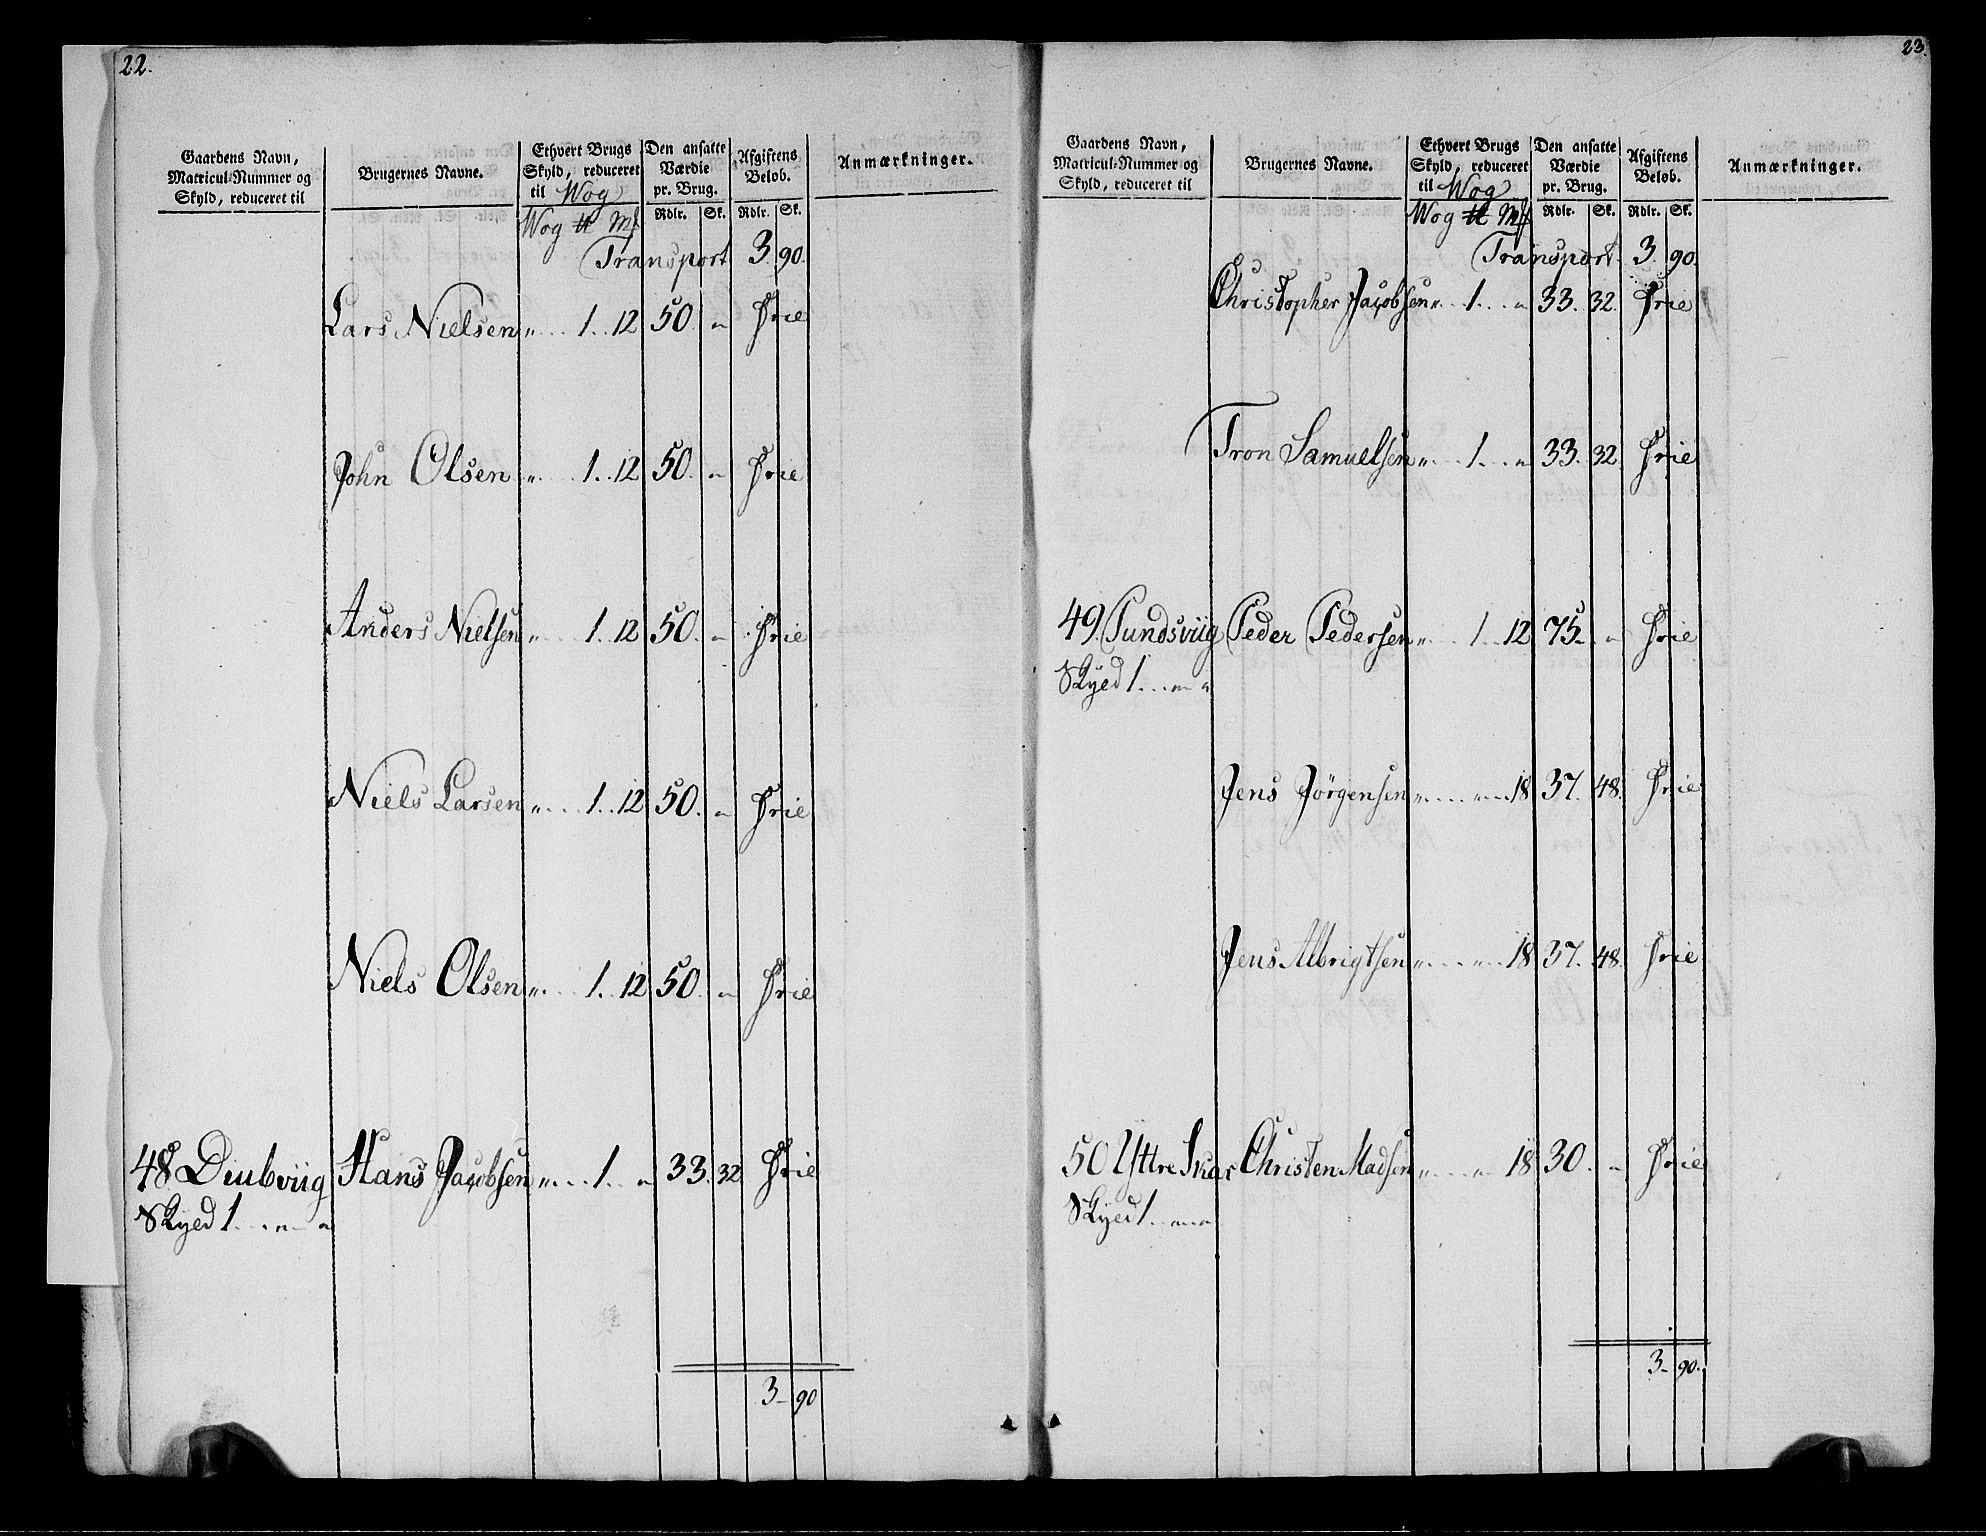 22.
Gaardens Navn, Matricul-Nummer og Skyld, reduceret til | Brugernes Navne. | Ethvert Brugs Skyld, reduceret til Wog | Den ansatte Værdie pr. Brug. | Afgiftens Beløb. | Anmærkninger.
Wog ℔ Mk | Rdlr. | Sk. | Rdlr. | Sk.
Transport 3. 90.
Lars Nielsen „ . . 1. . 12 50. „ Frie
John Olsen „ . . 1. . 12 50. „ Frie
Anders Nielsen „ . . 1. 12 50. „ Frie
Niels Larsen „ . . 1. . 12 50. „ Frie
Niels Olsen „ . . 1. . 12 50. „ Frie
48 Diubviig Hans Jacobsen „ . . 1. . „ 33. 32. Frie
Skyld 1. . „ „
3 – 90
23.
Gaardens Navn, Matricul-Nummer og Skyld, reduceret til | Brugernes Navne. | Ethvert Brugs Skyld, reduceret til Wog | Den ansatte Værdie pr. Brug. | Afgiftens Beløb. | Anmærkninger.
Wog ℔ Mk | Rdlr. | Sk. | Rdlr. | Sk.
Transport 3. 90.
Christopher Jacobsen „ . 1. . . „ 33. 32. Frie
Tron Samuelsen „ . . 1. . . „ 33. 32. Frie
49 Pundsviig Peder Pedersen „ . . 1. . 12 75. „ Frie
Skyld 1. . „ „
Jens Jörgensen „ . . „ . . 18 37. 48. Frie
Jens Albrigtsen „ . . „ . . 18 37. 48. Frie
50 Yttre Skar Christen Madsen „ . . „ 18 30. „ Frie
Skyld 1. . „ „
3 – 90.